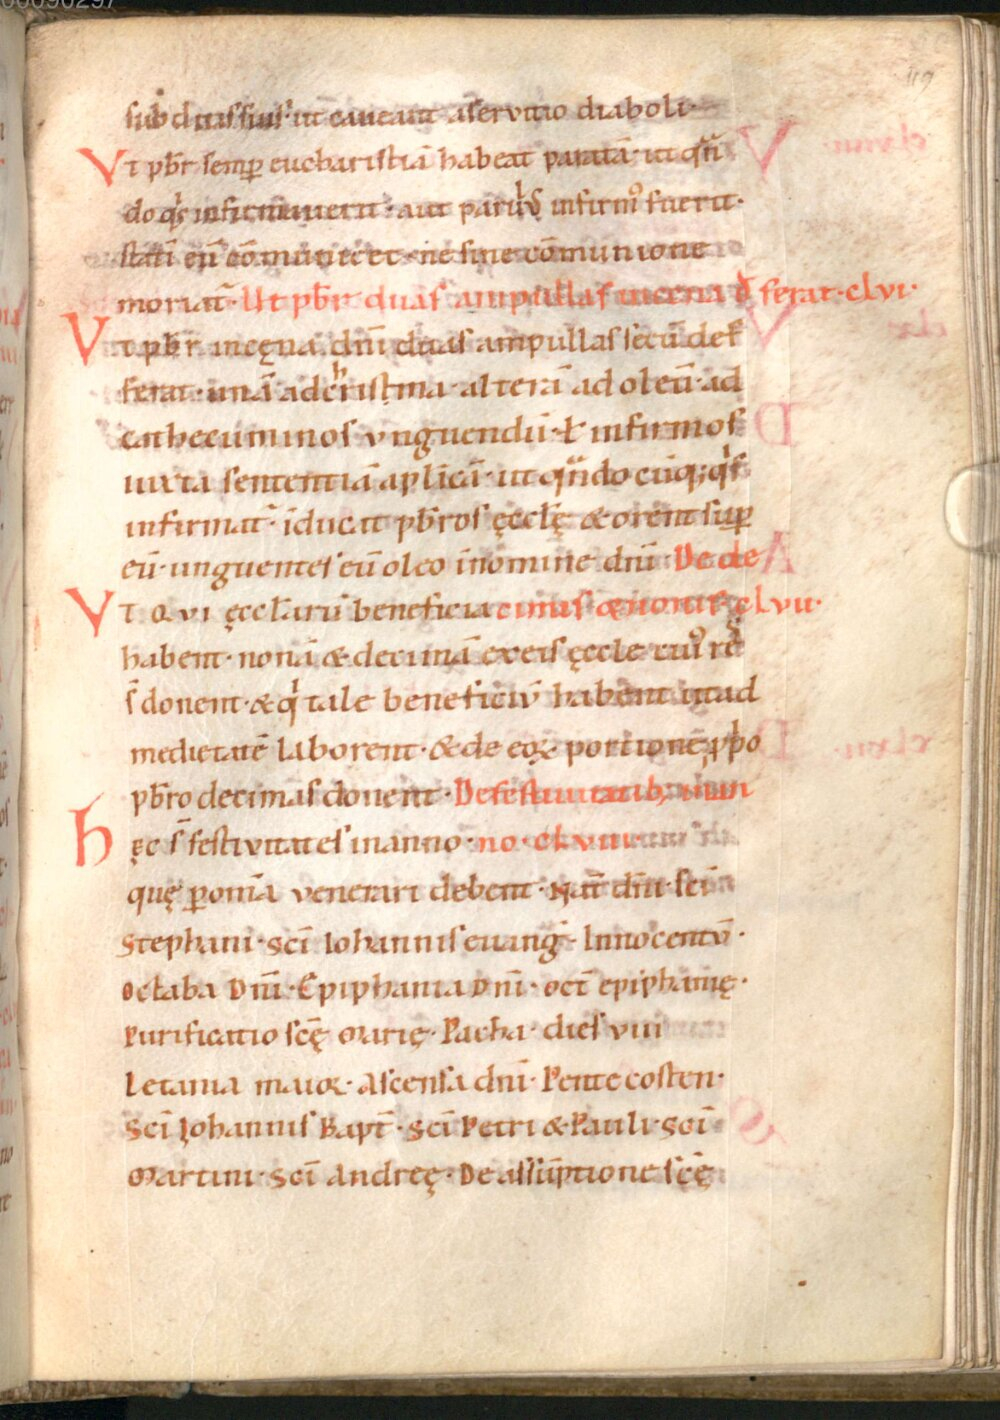 119
subditis suis· ut caueant aseruitio diaboli·
Vt pb̄r semp̱ eucharistiā habeat paratā· ut qn̄
do qͥs infirmauerit· aut paruuł infirmꝰ fuerit·
statī eū cōmunicet· ne sine cōmunione
moriat̄· Ut pb̄r duas ampullas incena d̄ ferat· clvi·
Vt pb̄r incęna dn̄i duas ampullas secū def
ferat· unā adchrisma· alterā ad oleū· ad
cathecuminos vnguendū· ł infirmos
iuxta sententiā aplicā· ut qn̄do cūq; qͥs
infirmat̄· īducat pb̄ros ęcclę & orent sup̱
eū· unguentes eū oleo īnomine dn̄i· De de
Vt qvi ęccłarū beneficia cimis & nonis· clvii·
habent· nonā & decimā exeis ęccle
s̄ donent· & qͥ tale beneficiū habent ut ad
medietatē laborent· & de eoꝝ portione ꝓpͥo
pb̄ro decimas donent· De festiuitatib; in an
hęc s̄ festiuitates inanno· no· clviii·
quę ꝑomīa venerari debent· Nat̄ dn̄i· sc̄i
Stephani· sc̄i Iohannis euanḡ· Innocentū·
octaba Dn̄i· Epiphania Dn̄i· oct̄ epiphanię·
Purificatio sc̄ę Marię· Pacha· dies viii
Letania maioꝝ· Ascensa dn̄i· Pentecosten·
Sc̄i Iohannis Bapt̄· Sc̄i Petri & Pauli· Sc̄i
Martini· Sc̄i Andreę· De assūptione sc̄ę